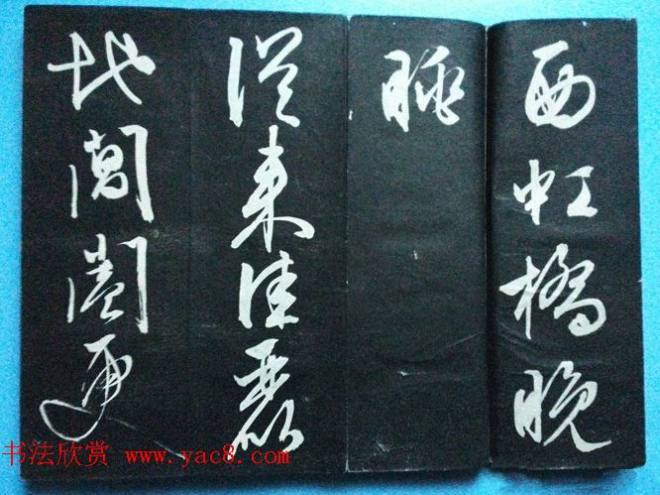 西虹橋晚
眺
從來佳麗
地闤闠
书法欣赏 www.yac8.com